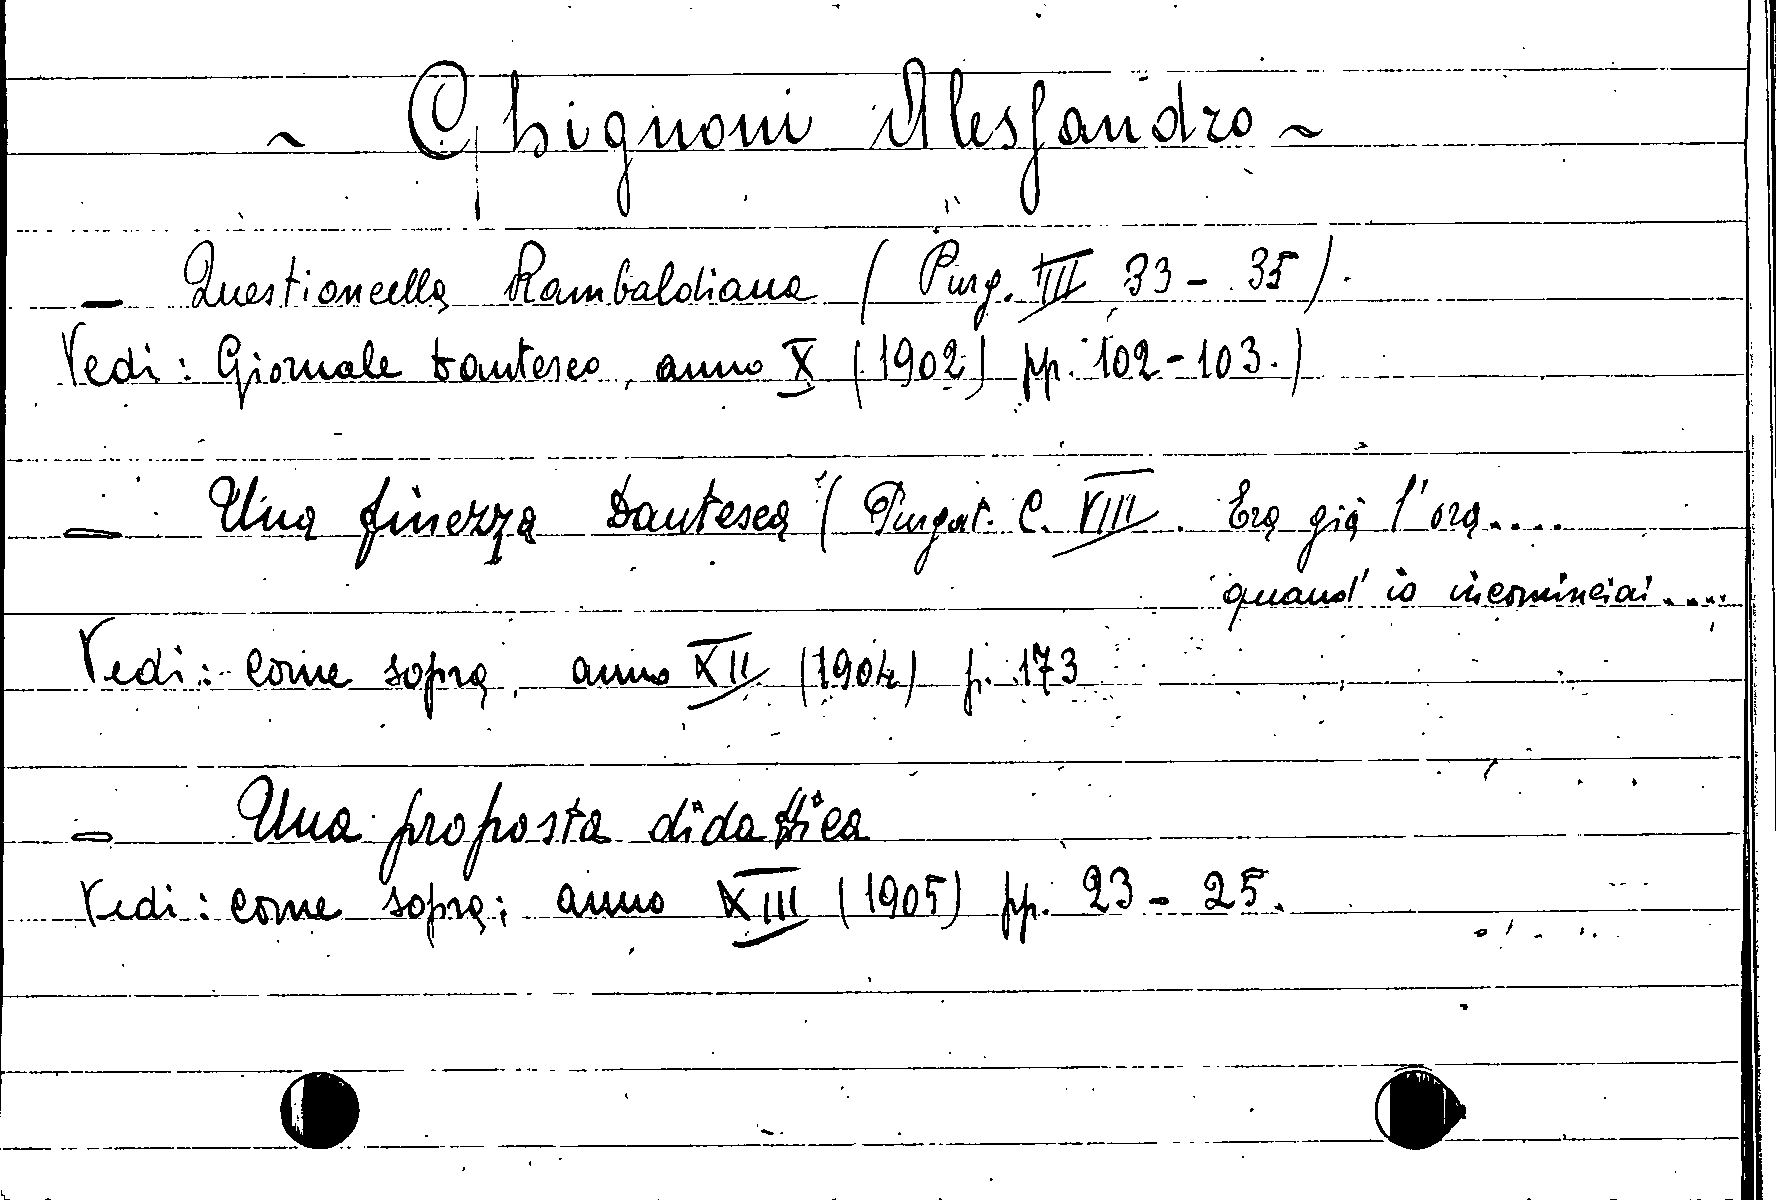 ~ Ghignoni Alessandro ~
— Questioncella Rambaldiana ( Purg. III 33 - 35).
Vedi : Giornale Dantesco, anno X (1902) pp. 102-103.)
— Una finezza Dantesca ( Purgat. C. VIII. Era già l'ora....
quand' io incominciai....
Vedi : come sopra, anno XII (1904) p. 173
— Una proposta didattica
Vedi : come sopra; anno XIII (1905) pp. 23 - 25.